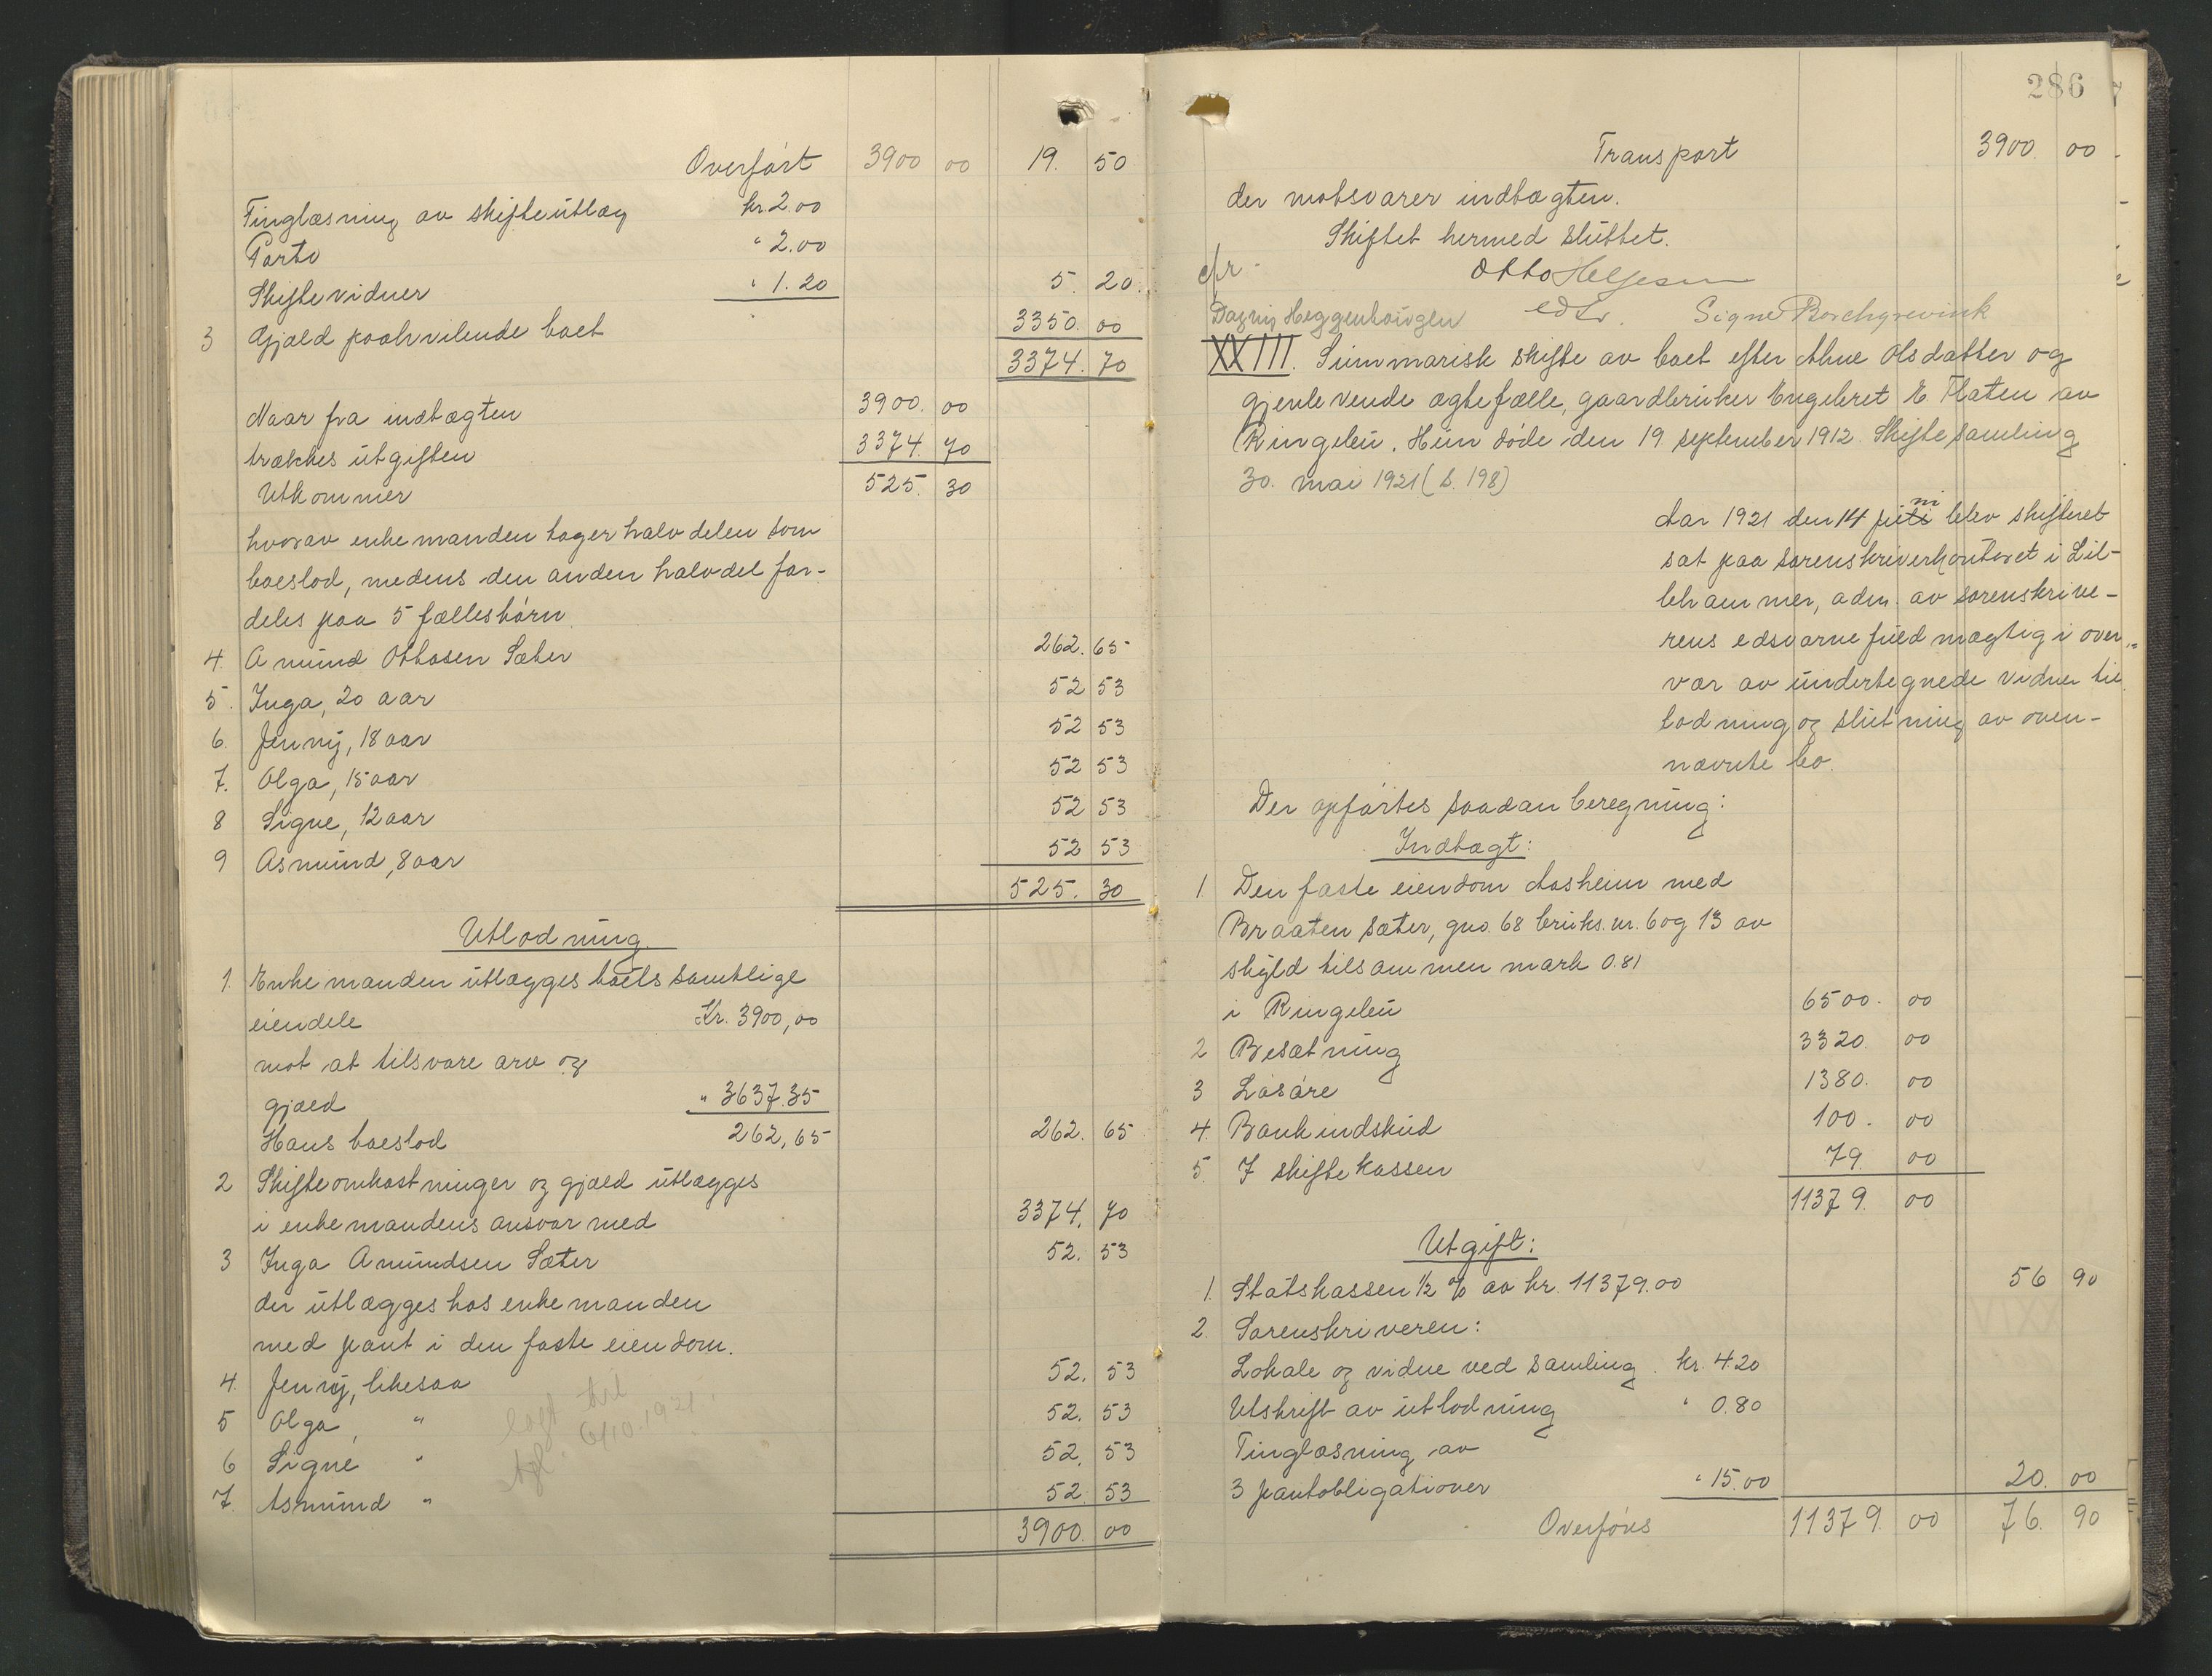 Overført 3900 00 19. 50
Tinglæsning av skifteutlæg kr. 2.00
Porto " 2.00
Skiftevidner " 1.20 5. 20.
3 Gjæld paahvilende boet 3350. 00
3374. 70
Naar fra indtægten 3900. 00
trækkes utgiften 3374. 70
Utkommer 525. 30
hvorav enkemanden tager halvdelen som
boeslod, medens den anden halvdel for-
deles paa 5 fællesbørn.
4. Amund Ottosen Sæter 262. 65
5. Inga, 20 aar 52 53
6. Jenny, 18 aar 52 53
7. Olga, 15 aar 52 53
8 Signe, 12 aar 52 53
9 Asmund, 8 aar 52 53
525. 30
Utlodning.
1. Enkemanden utlægges boets samtlige
eiendele Kr. 3900,00
mot at tilsvare arv og
gjæld " 3637.35
Hans boeslod 262,65 262. 65
2 Skifteomkostninger og gjæld utlægges
i enkemandens ansvar med 3374. 70
3 Inga Amundsen Sæter 52. 53
der utlægges hos enkemanden
med pant i den faste eiendom.
4. Jenny, likesaa 52. 53
5 Olga, " 52. 53
6 Signe " 52. 53
7. Asmund " 52. 53
3900. 00
6/10. 1921
286
Transport 3900. 00
der motsvarer indtægten.
Skiftet hermed sluttet.
cfr. Otto Helgesen
Dagny Heggenhougen eds. Signe Borchgrevink
XXIII. Summarisk skifte av boet efter Ahne Olsdatter og
gjenlevende ægtefælle, gaardbruker Engebret E Flaten av
Ringebu. Hun døde den 19 september 1912. Skiftesamling
30. mai 1921 (s. 198)
Aar 1921 den 14 juni blev skifteret
sat paa sorenskriverkontoret i Lil-
lehammer, adm. av sorenskrive-
rens edsvorne fuldmægtig i over-
vær av undertegnede vidner til
lodning og slutning av oven-
nævnte bo.
Der opførtes saadan beregning:
Indtægt:
1 Den faste eiendom Aasheim med
Braaten sæter, gno. 68 bruks.nr. 6 og 13 av
skyld tilsammen mark 0.81
i Ringebu 6500. 00
2 Besætning 3320. 00
3 Løsøre 1380. 00
4. Bankindskud 100. 00
5. I skiftekassen 79. 00
11379. 00
Utgift:
1. Statskassen 1/2 % av kr. 11379.00 56 90
2. Sorenskriveren:
Lokale og vidne ved samling. kr. 4.20
Utskrift av utlodning " 0.80
Tinglæsning av
3 pantobligationer " 15.00 20. 00
Overføres 11379. 00 76. 90